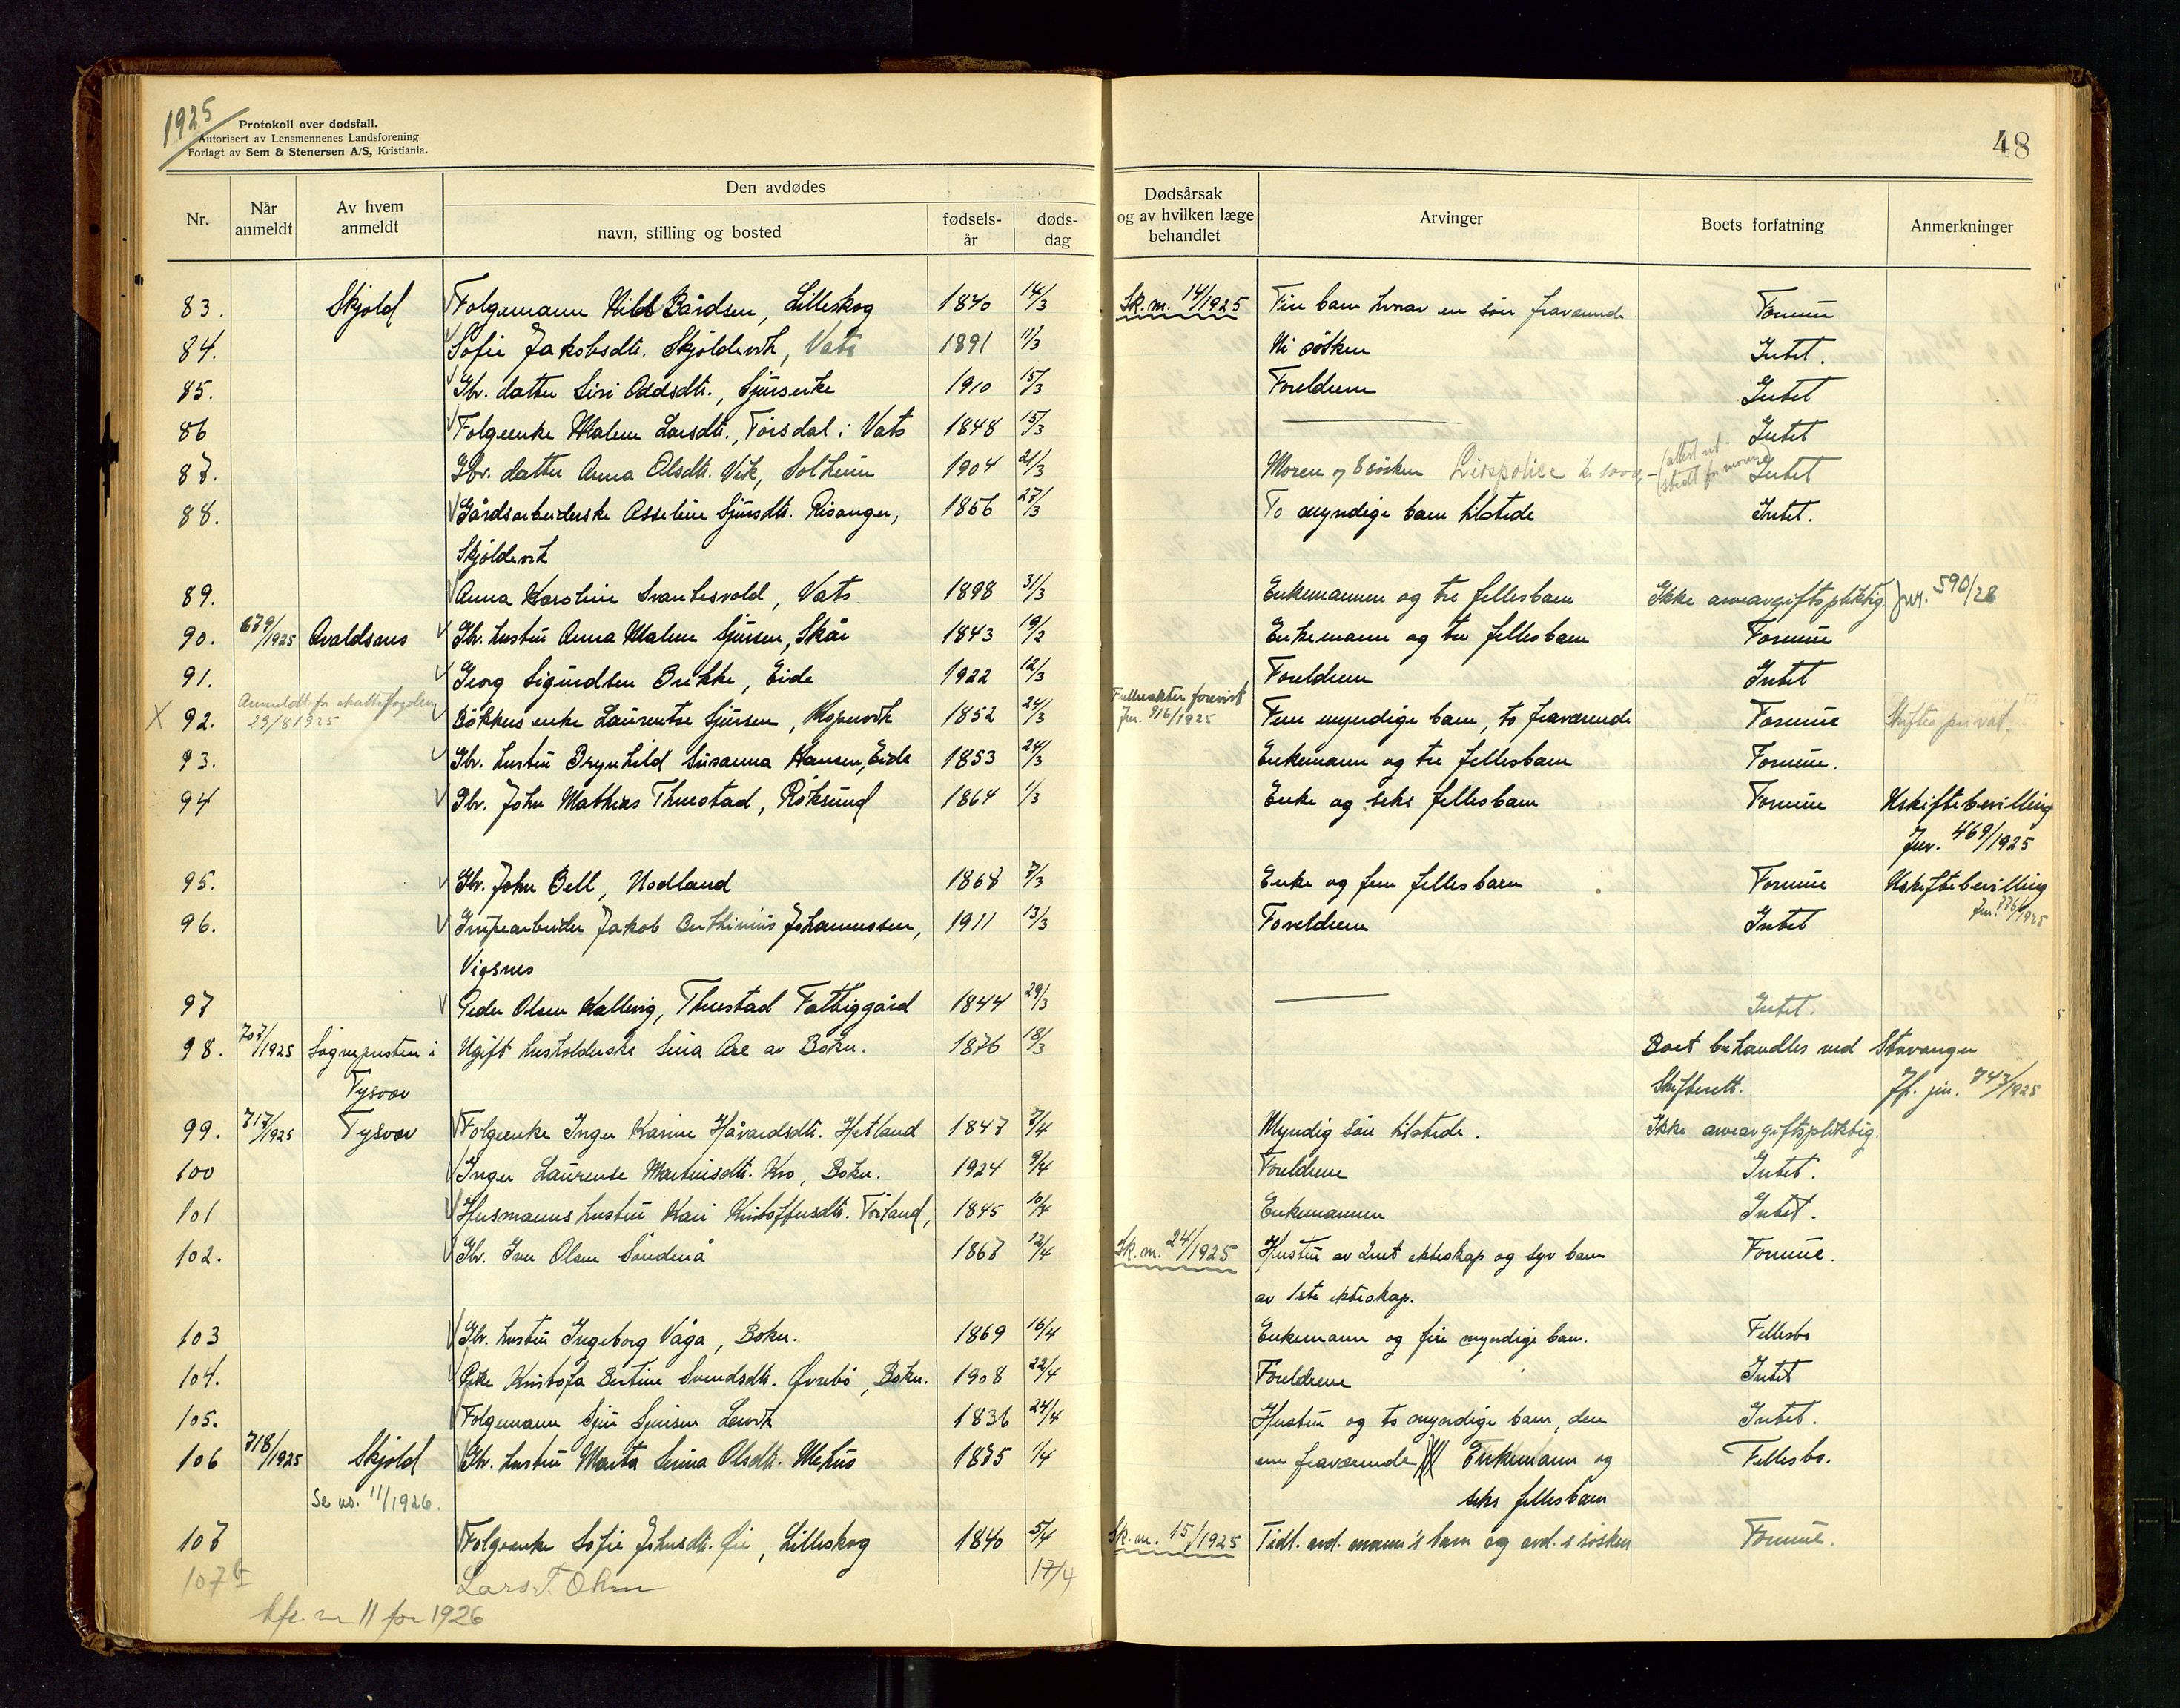 1925
Protokoll over dødsfall.
Autorisert av Lensmennenes Landsforening
Forlagt av Sem & Stenersen A/S, Kristiania.
48
Nr. Når anmeldt Av hvem anmeldt Den avdødes navn, stilling og bosted fødsels-år døds-dag Dødsårsak og av hvilken læge behandlet Arvinger Boets forfatning Anmerkninger
83. Skjold Folgemann Bårdsen, Lilleskog 1840 14/3 Sk. m. 14/1925 Fire barn hvorav en sön fraværende Formue
84. Sofie Jakobsdtr. Skjoldevik, Vats 1891 11/3 Niösken Intet.
85. Gbr. datter Siri Oddsdtr., Sjurserke 1910 15/3 Foreldrene Intet
86 Folgeenke Malene Larsdtr., Törsdal i Vats 1848 15/3 — Intet
87. Gbr. datter Anna Olsdtr. Vik, Solheim 1904 21/3 Moren og 8 sösken Livspolice kr 1000,- Intet
88. Gårdsarbeiderske Asseline Sjursdtr. Risanger, 1856 27/3 To myndige barn tilstede Intet.
Skjoldevik
89. Anna Karoline Svantesvold, Vats 1898 31/3 Enkemannen og tre fellesbarn Ikke arveavgiftspliktig Jur. 590/28
90. 679/1925 Avaldsnes Gbr. hustru Anna Malene Sjursen, Skår 1843 19/2 Enkemann og tre fellesbarn Formue
91. Georg Sigurdsen Brekke, Eide 1922 12/3 Foreldrene Intet
Anmeldt for skattefogden Fullmakten forevist
X 92. 29/8 1925 Bökkers enke Laurentse Sjursen, Kopervik 1852 24/3 Jur. 916/1925 Fem myndige barn, to fraværende Formue Skiftes privat.
93. Gbr. hustru Brynhild Susanna Hansen, Eide 1853 24/3 Enkemann og tre fellesbarn Formue.
94 Gbr. John Mathias Thuestad, Röksund 1864 1/3 Enke og seks fellesbarn Formue Uskiftebevilling
Jur. 469/1925
95. Gbr. John Bell, Nodland 1868 7/3 Enke og fem fellesbarn Formue Uskiftebevilling
96. Grubearbeider Jakob Berthinius Johannessen, 1911 13/3 Foreldrene Intet Jur. 776/1925
Vigsnes
97 Peder Olsen Kallevig, Thuestad Fattiggård 1844 29/3 — Intet.
98. 707/1925 Sognepresten i Ugift husholderske Sina Are av Bokn. 1876 18/3 Boet behandles ved Stavanger
Tysvær Skifterett. Jfr. jur. 743/1925
99. 717/1925 Tysvær Folgeenke Inger Karine Håvardsdtr. Hetland 1847 7/4 Myndig sön tilstede. Ikke arveavgiftspliktig.
100 Inger Laurense Martinsdtr. Kro, Bokn. 1924 9/4 Foreldrene Intet.
101 Husmanns hustru Kari Kristoffersdtr. Törland, 1845 10/4 Enkemannen Intet.
102. Gbr. Iver Olsen Sönderå 1867 12/4 Sk. m. 24/1925 Hustru av 2net ekteskap og syv barn Formue.
av 1ste ekteskap.
103 Gbr. hustru Ingeborg Våga, Bokn. 1869 16/4 Enkemann og fire myndige barn. Fellesbo
104. Pike Kristofa Bertine Svendsdtr. Övrebö, Bokn. 1908 22/4 Foreldrene Intet
105. Folgemann Sjur Sjursen Lervik 1836 24/4 Hustru og to myndige barn, den Intet.
106 718/1925 Skjold Gbr. hustru Marta Serina Olsdtr. Mehus 1875 1/4 ene fraværende Enkemann og Fellesbo.
Se no. 11/1926. seks fellesbarn
107 Folgeenke Sofie Johnsdtr. Öie, Lilleskog 1840 5/4 Sk. m. 15/1925 Tidl. avd. mann's barn og avd.s sösken Formue.
107 Lars T. 17/4
11 for 1926